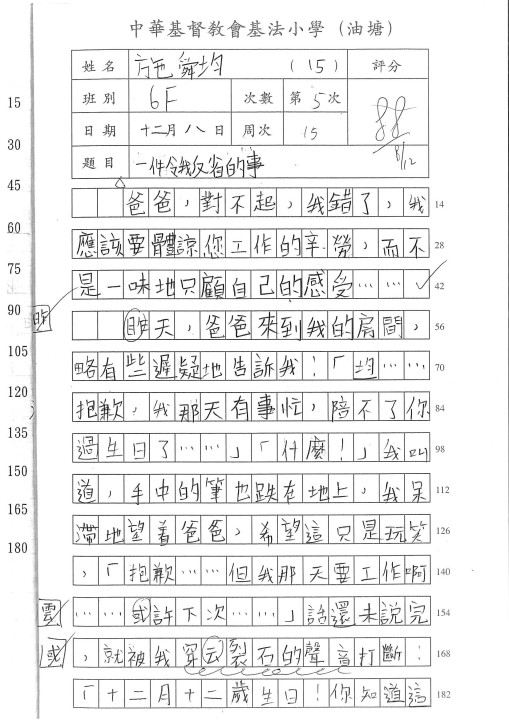 中華基督教會基法小學（油塘）
姓名 方包舜均 （15） 評分
班別 6F 次數 第5次 88
日期 十二月八日 周次 15 8/12
題目 一件令我反省的事
15
30
45
60
75
90
105
120
135
150
165
180
爸爸，對不起，我錯了，我 14
應該要體諒您工作的辛勞，而不 28
是一味地只顧自己的感受⋯⋯ 42
昨 昨天，爸爸來到我的房間， 56
略有些遲疑地告訴我：「均⋯⋯ 70
抱歉，我那天有事忙，陪不了你 84
過生日了⋯⋯」「什麼！」我叫 98
道，手中的筆也跌在地上，我呆 112
滯地望着爸爸，希望這只是玩笑 126
，「抱歉⋯⋯但我那天要工作啊 140
雲 ⋯⋯或許下次⋯⋯」話還未說完 154
或 ，就被我穿云裂石的聲音打斷： 168
「十二月十二歲生日！你知道這 182